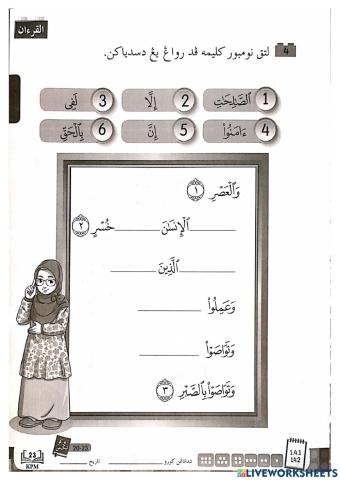 القرءان
4 لتق نومبور كليمه ڤد رواڠ يڠ دسدياكن.
1 ٱلصَّٰلِحَٰتِ 2 إِلَّا 3 لَفِى
4 ءَامَنُوا۟ 5 إِنَّ 6 بِٱلْحَقِّ
وَٱلْعَصْرِ ١
______ ٱلْإِنسَٰنَ ______ خُسْرٍ ٢
______ ٱلَّذِينَ ______
وَعَمِلُوا۟ ______
وَتَوَاصَوْا۟ ______
وَتَوَاصَوْا۟ بِٱلصَّبْرِ ٣
20-23
23
KPM
تندتاڠن ݢورو ______ تاريخ ______
1.4.1
1.4.2
LIVEWORKSHEETS